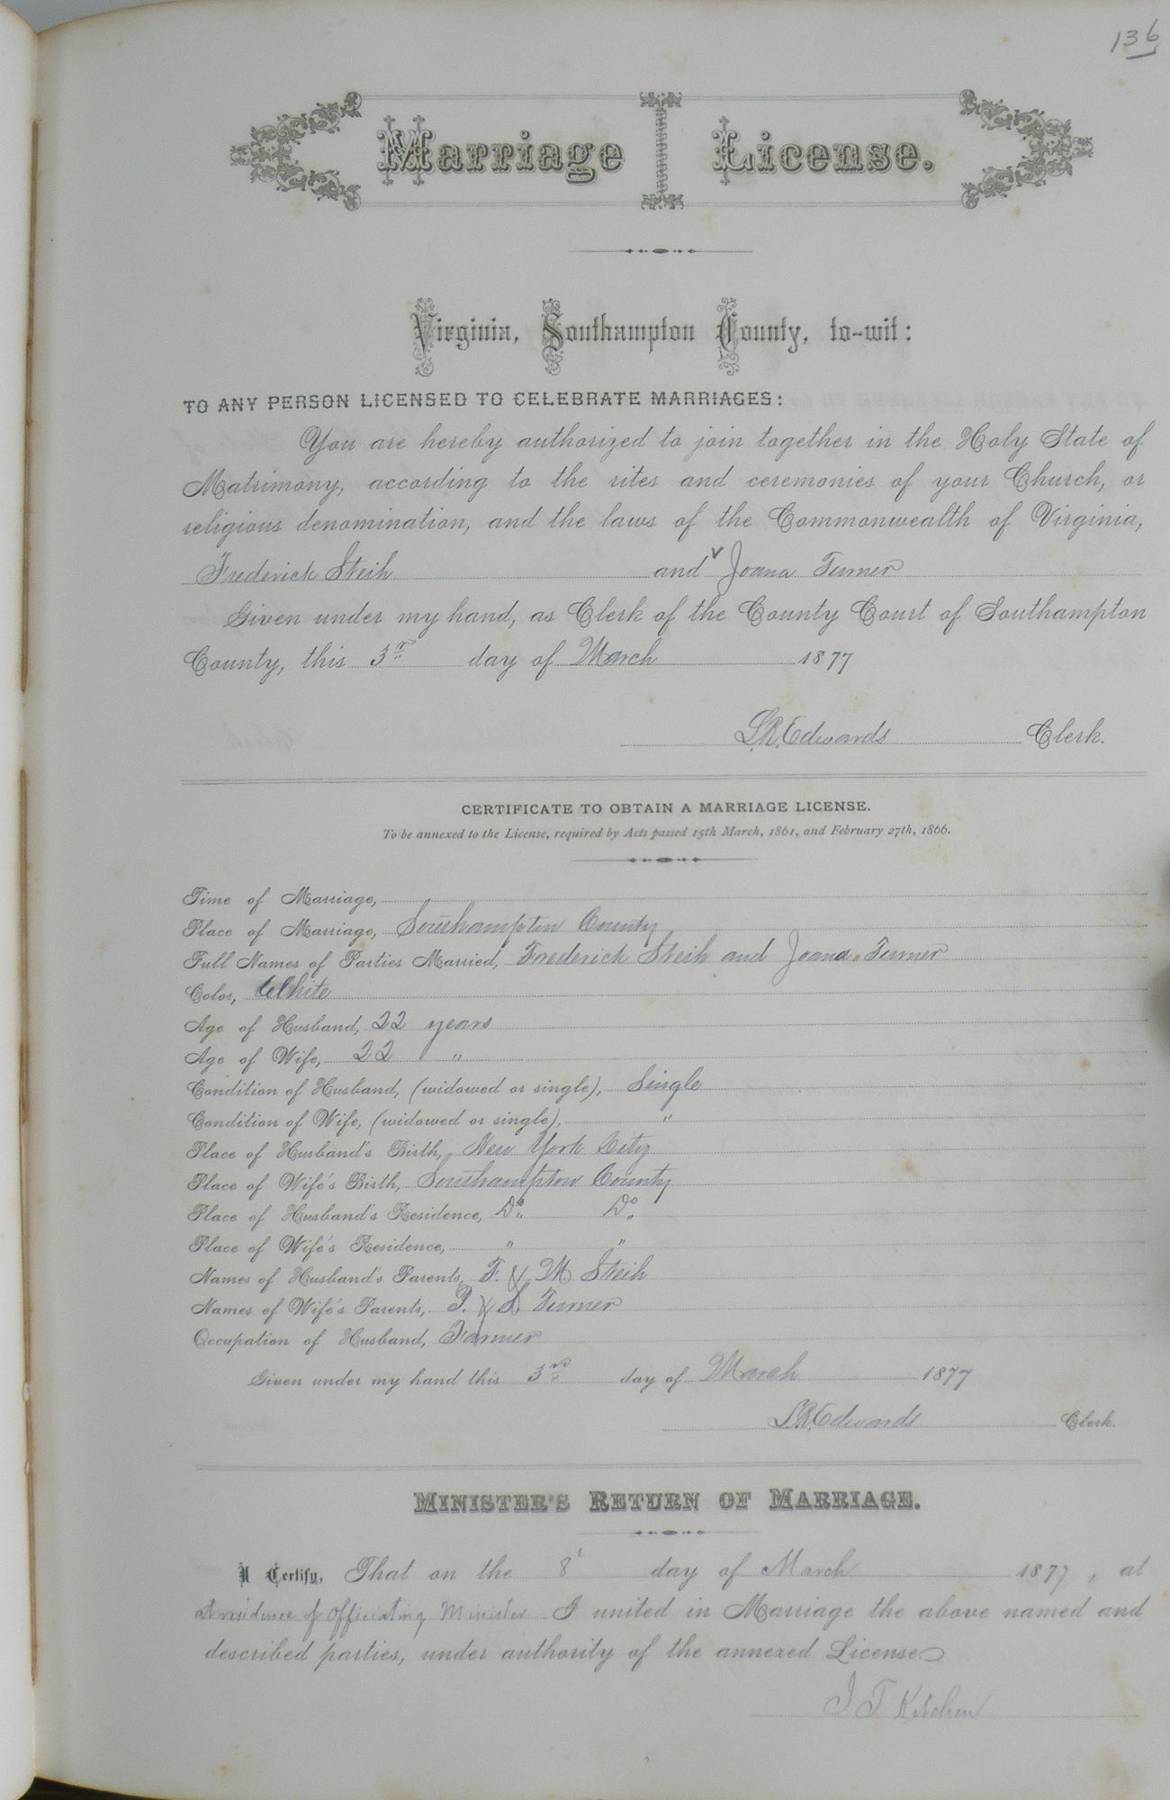 136
Marriage License.
Virginia, Southampton County, to-wit:
TO ANY PERSON LICENSED TO CELEBRATE MARRIAGES:
You are hereby authorized to join together in the Holy State of
Matrimony, according to the rites and ceremonies of your Church, or
religious denomination, and the laws of the Commonwealth of Virginia,
Frederick Steih and Joana Turner
Given under my hand, as Clerk of the County Court of Southampton
County, this 3rd day of March 1877
L.R. Edwards Clerk.
CERTIFICATE TO OBTAIN A MARRIAGE LICENSE.
To be annexed to the License, required by Acts passed 15th March, 1861, and February 27th, 1866.
Time of Marriage,
Place of Marriage, Southampton County
Full Names of Parties Married, Frederick Steih and Joana Turner
Color, White
Age of Husband, 22 years
Age of Wife, 22 "
Condition of Husband, (widowed or single), Single
Condition of Wife, (widowed or single), "
Place of Husband's Birth, New York City
Place of Wife's Birth, Southampton County
Place of Husband's Residence, Do. Do.
Place of Wife's Residence, " "
Names of Husband's Parents, F. & M Steih
Names of Wife's Parents, P. & S Turner
Occupation of Husband, Farmer
Given under my hand this 3rd day of March 1877
L.R. Edwards Clerk.
MINISTER'S RETURN OF MARRIAGE.
I Certify, That on the 8t day of March 1877, at
at residence of Officiating Minister I united in Marriage the above named and
described parties, under authority of the annexed License
J T Kitchen